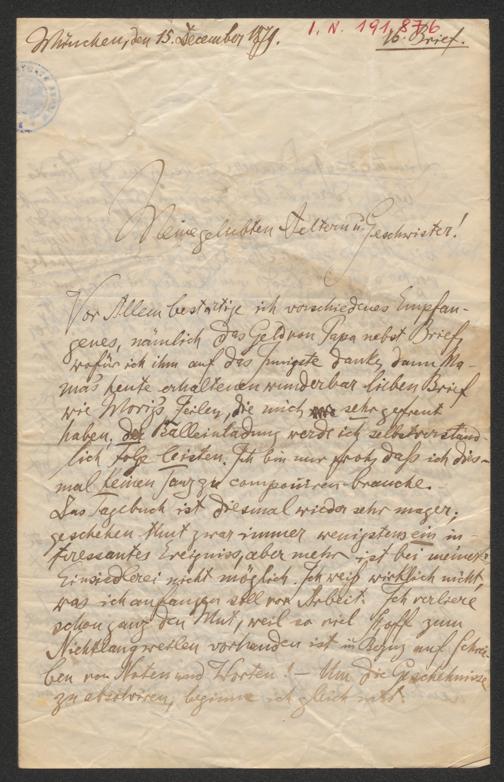 I. N. 191.876
München, den 15. December 1879.
16. Brief.
Meine geliebten Aeltern u. Geschwister!
Vor Allem bestätige ich verschiedenes Empfan-
genes, nämlich das Geld von Papa nebst Brief,
wofür ich ihm auf das Innigste danke, dann Ma-
mas heute erhaltenen wunderbar lieben Brief
wie Moriz's Zeilen, die mich sehr gefreut
haben. Der Balleinladung werde ich selbstverständ-
lich folge leisten. Ich bin nur froh, daß ich dies-
mal keinen Tanz zu componiren brauche. –
Das Tagebuch ist diesmal wieder sehr mager;
geschehen thut zwar immer wenigstens ein in-
teressantes Ereigniss, aber mehr ist bei meiner
Einsiedlerei nicht möglich. Ich weiß wirklich nicht,
was ich anfangen soll vor Arbeit. Ich verliere
schon ganz den Mut, weil so viel Stoff zum
Nichtlangweilen vorhanden ist in Bezug auf Schrei-
ben von Noten und Worten! – Um die Geschehnisse
zu absolviren, beginne ich gleich mit